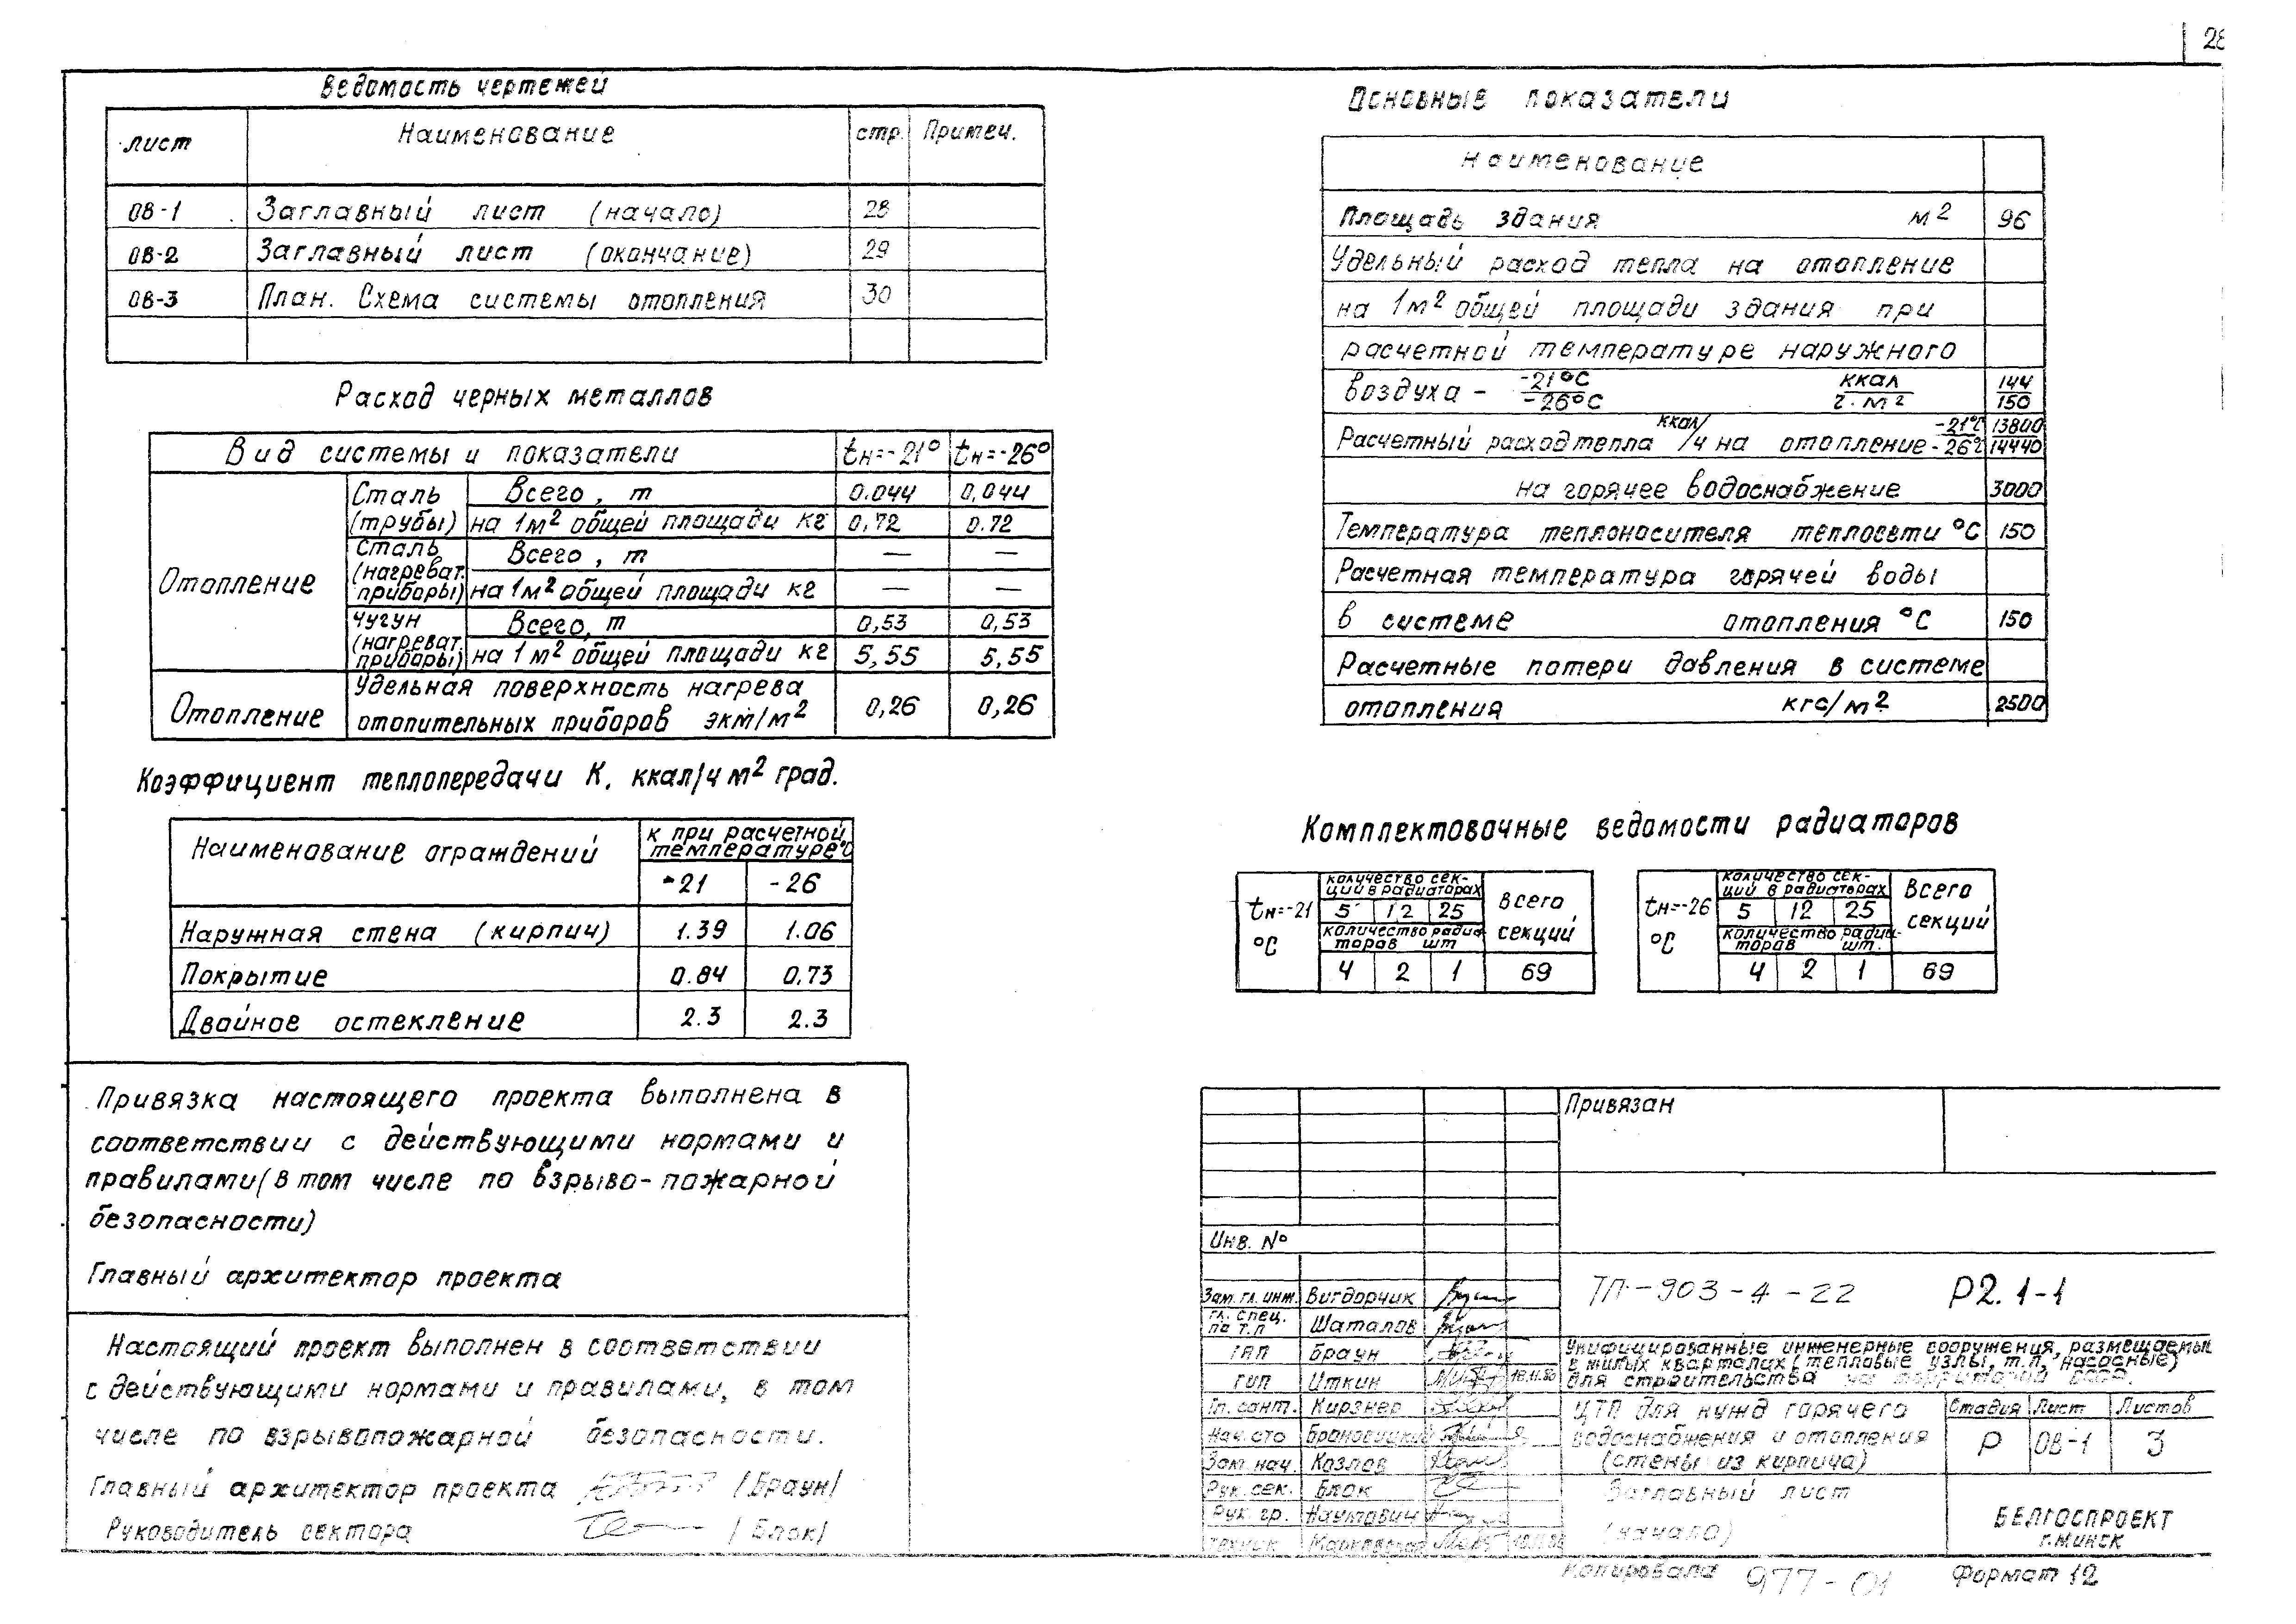 28
Ведомость чертежей
лист Наименование стр. Примеч.
ОВ-1 Заглавный лист (начало) 28
ОВ-2 Заглавный лист (окончание) 29
ОВ-3 План. Схема системы отопления 30
Расход черных металлов
Вид системы и показатели tн=-21° tн=-26°
Отопление
Сталь (трубы)
Всего, т 0.044 0,044
на 1м² общей площади кг 0,72 0.72
Сталь (нагреват. приборы)
Всего, т — —
на 1м² общей площади кг — —
Чугун (нагреват. приборы)
Всего, т 0,53 0,53
на 1м² общей площади кг 5,55 5,55
Отопление
Удельная поверхность нагрева
отопительных приборов экм/м² 0,26 0,26
Коэффициент теплопередачи К, ккал/ч м² град.
Наименование ограждений
к при расчетной
температуре °С
-21 -26
Наружная стена (кирпич) 1.39 1.06
Покрытие 0.84 0,73
Двойное остекление 2.3 2.3
Привязка настоящего проекта выполнена в
соответствии с действующими нормами и
правилами (в том числе по взрыво-пожарной
безопасности)
Главный архитектор проекта
Настоящий проект выполнен в соответствии
с действующими нормами и правилами, в том
числе по взрывопожарной безопасности.
Главный архитектор проекта /Браун/
Руководитель сектора /Блок/
Основные показатели
Наименование
Площадь здания м² 96
Удельный расход тепла на отопление
на 1м² общей площади здания при
расчетной температуре наружного
воздуха - -21°С / -26°С ккал / ч.м² 144 / 150
Расчетный расход тепла ккал/ч на отопление -21°С / -26°С 13800 / 14440
на горячее водоснабжение 3000
Температура теплоносителя теплосети °С 150
Расчетная температура горячей воды
в системе отопления °С 150
Расчетные потери давления в системе
отопления кгс/м² 2500
Комплектовочные ведомости радиаторов
tн=-21 °С
количество сек-
ций в радиаторах
5 12 25
количество радиа-
торов шт
4 2 1
всего секций
69
tн=-26 °С
количество сек-
ций в радиаторах
5 12 25
количество радиа-
торов шт.
4 2 1
Всего секций
69
Привязан
Инв. №
Зам. гл. инж. Вигдорчик
гл. спец. по т.п Шаталов
ГАП Браун
ГИП Иткин
Гл. сант. Кирзнер
Нач. сто
Зам. нач. Козлов
Рук. сек. Блок
Рук. гр. Наумович
техник
ТП-903-4-22 Р2.1-1
Унифицированные инженерные сооружения, размещаемые
в жилых кварталах (тепловые узлы, т.п., насосные)
для строительства на территории БССР.
ЦТП для нужд горячего
водоснабжения и отопления
(стены из кирпича)
Стадия Лист Листов
Р ОВ-1 3
Заглавный лист
(начало)
БЕЛГОСПРОЕКТ
г. МИНСК
Копировала 977-01 Формат 12